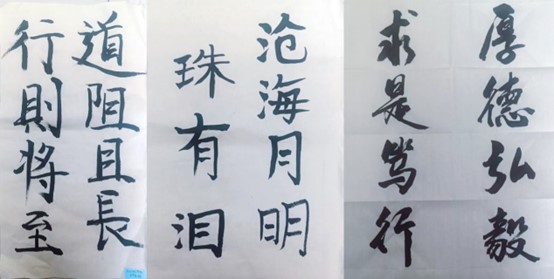 道阻且長
行則將至
沧海月明
珠有泪
厚德弘毅
求是笃行